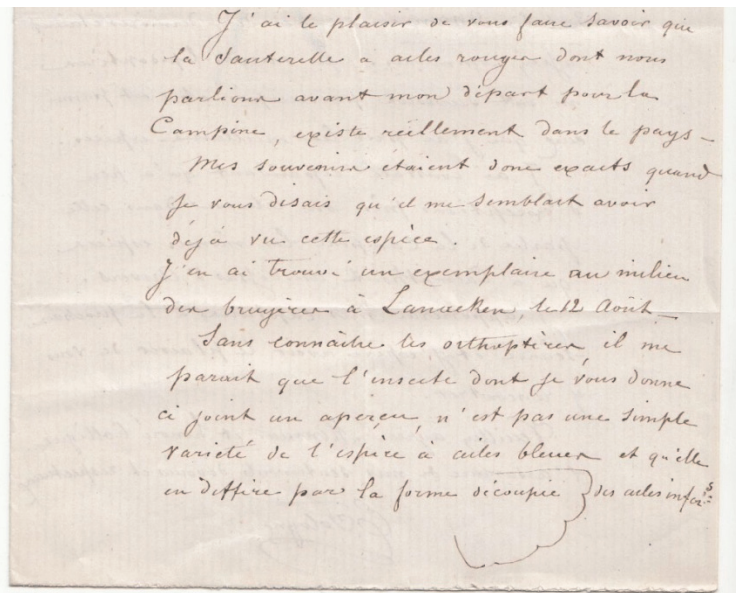 J'ai le plaisir de vous faire savoir que
la Sauterelle à ailes rouges dont nous
parlions avant mon départ pour la
Campine, existe réellement dans le pays –
Mes souvenirs étaient donc exacts quand
je vous disais qu'il me semblait avoir
déjà vu cette espèce.
J'en ai trouvé un exemplaire au milieu
des bruyères à Lanaeken, le 12 Août –
Sans connaître les orthoptères, il me
parait que l'insecte dont je vous donne
ci joint un aperçu, n'est pas une simple
variété de l'espèce à ailes bleues et qu'elle
en diffère par la forme découpée des ailes infres